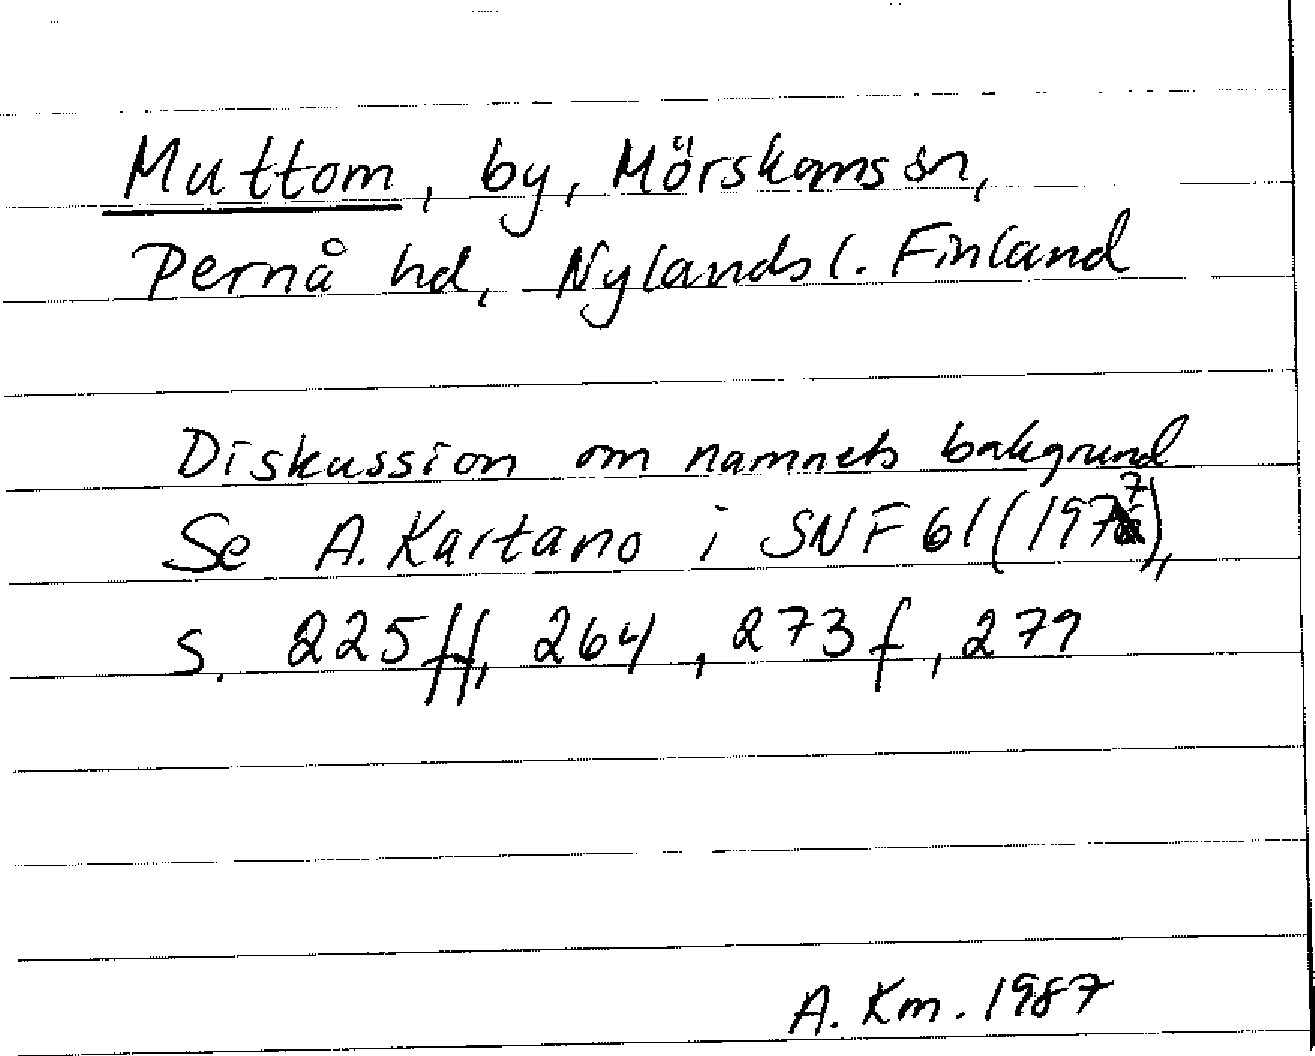 Muttom, by, Mörskoms sn,
Pernå hd, Nylands l. Finland
Diskussion om namnets bakgrund
Se A. Kartano i SNF 61 (1977),
s. 225 ff, 264, 273 f, 279
A. Km. 1987